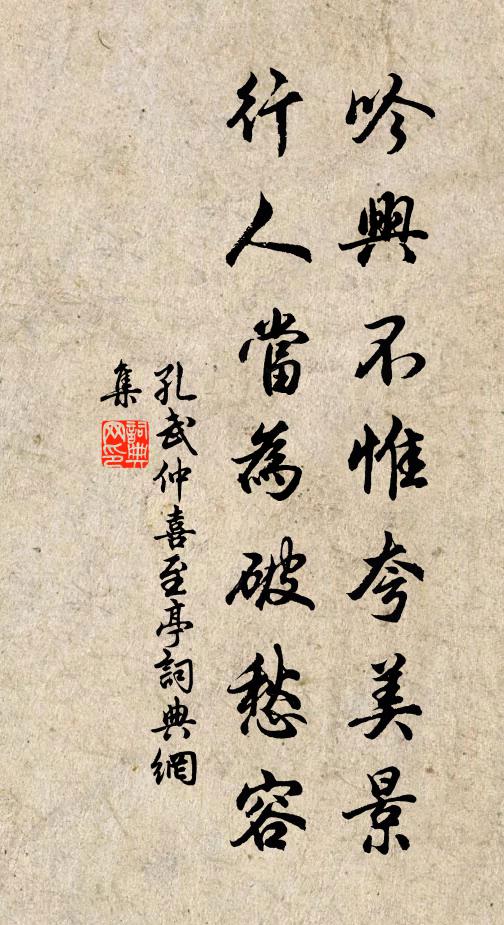 吟興不惟夸美景
行人當為破愁容
孔武仲喜至亭詞典網
集
詞典
网印